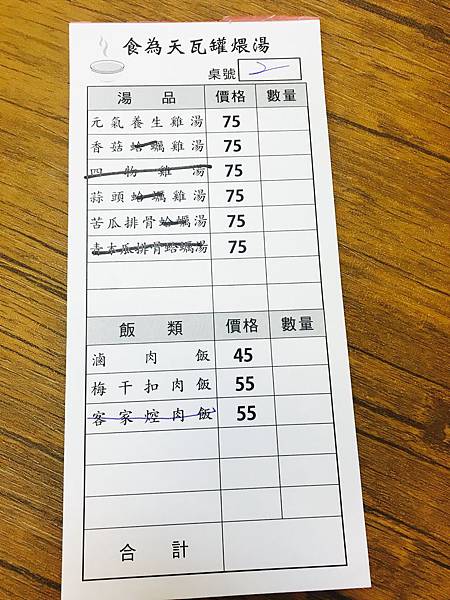 食為天瓦罐煨湯
桌號 2
湯品 價格 數量
元氣養生雞湯 75
香菇蛤蠣雞湯 75
四物雞湯 75
蒜頭蛤蠣雞湯 75
苦瓜排骨蛤蠣湯 75
青木瓜排骨蛤蠣湯 75
飯類 價格 數量
滷肉飯 45
梅干扣肉飯 55
客家焢肉飯 55
合計